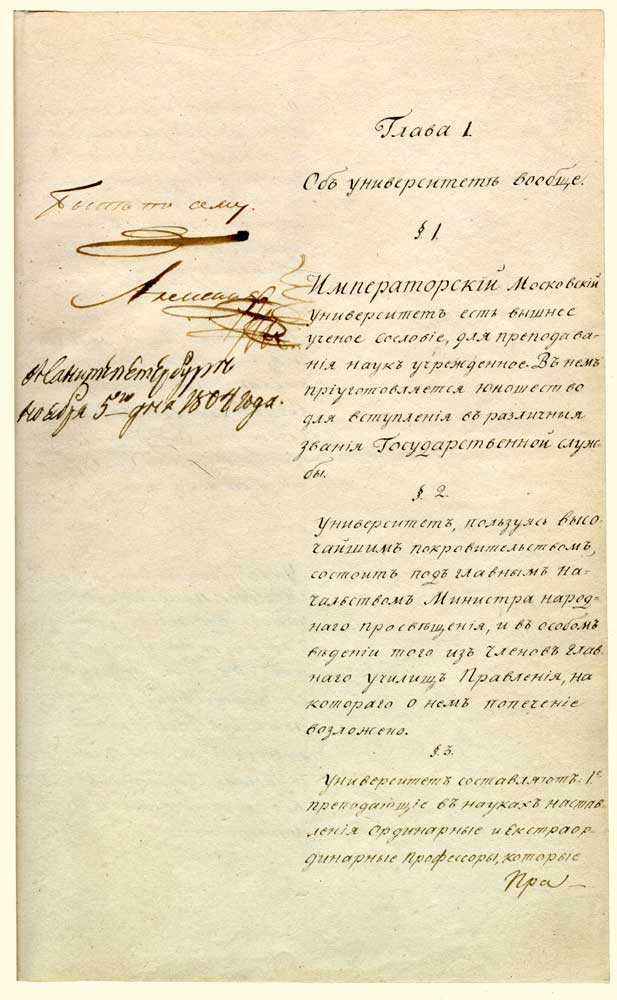 Быть по сему.
Александръ
въ Санктпетербургѣ
ноября 5го дня 1804 года.
Глава I.
Объ университетѣ вообще.
§. 1.
Императорскій Московскій
университетъ есть вышнее
ученое сословіе, для преподава-
нія наукъ учрежденное. Въ немъ
пріуготовляется юношество
для вступленія въ различныя
званія Государственной служ-
бы.
§. 2.
Университетъ, пользуясь высо-
чайшимъ покровительствомъ,
состоитъ подъ главнымъ на-
чальствомъ Министра народ-
наго просвѣщенія, и въ особомъ
вѣденіи того изъ Членовъ глав-
наго училищъ Правленія, на
котораго о немъ попеченіе
возложено.
§. 3.
Университетъ составляютъ: 1е
преподающіе въ наукахъ настав-
ленія Ординарные и Екстраор-
динарные Профессоры, которые
Пра-